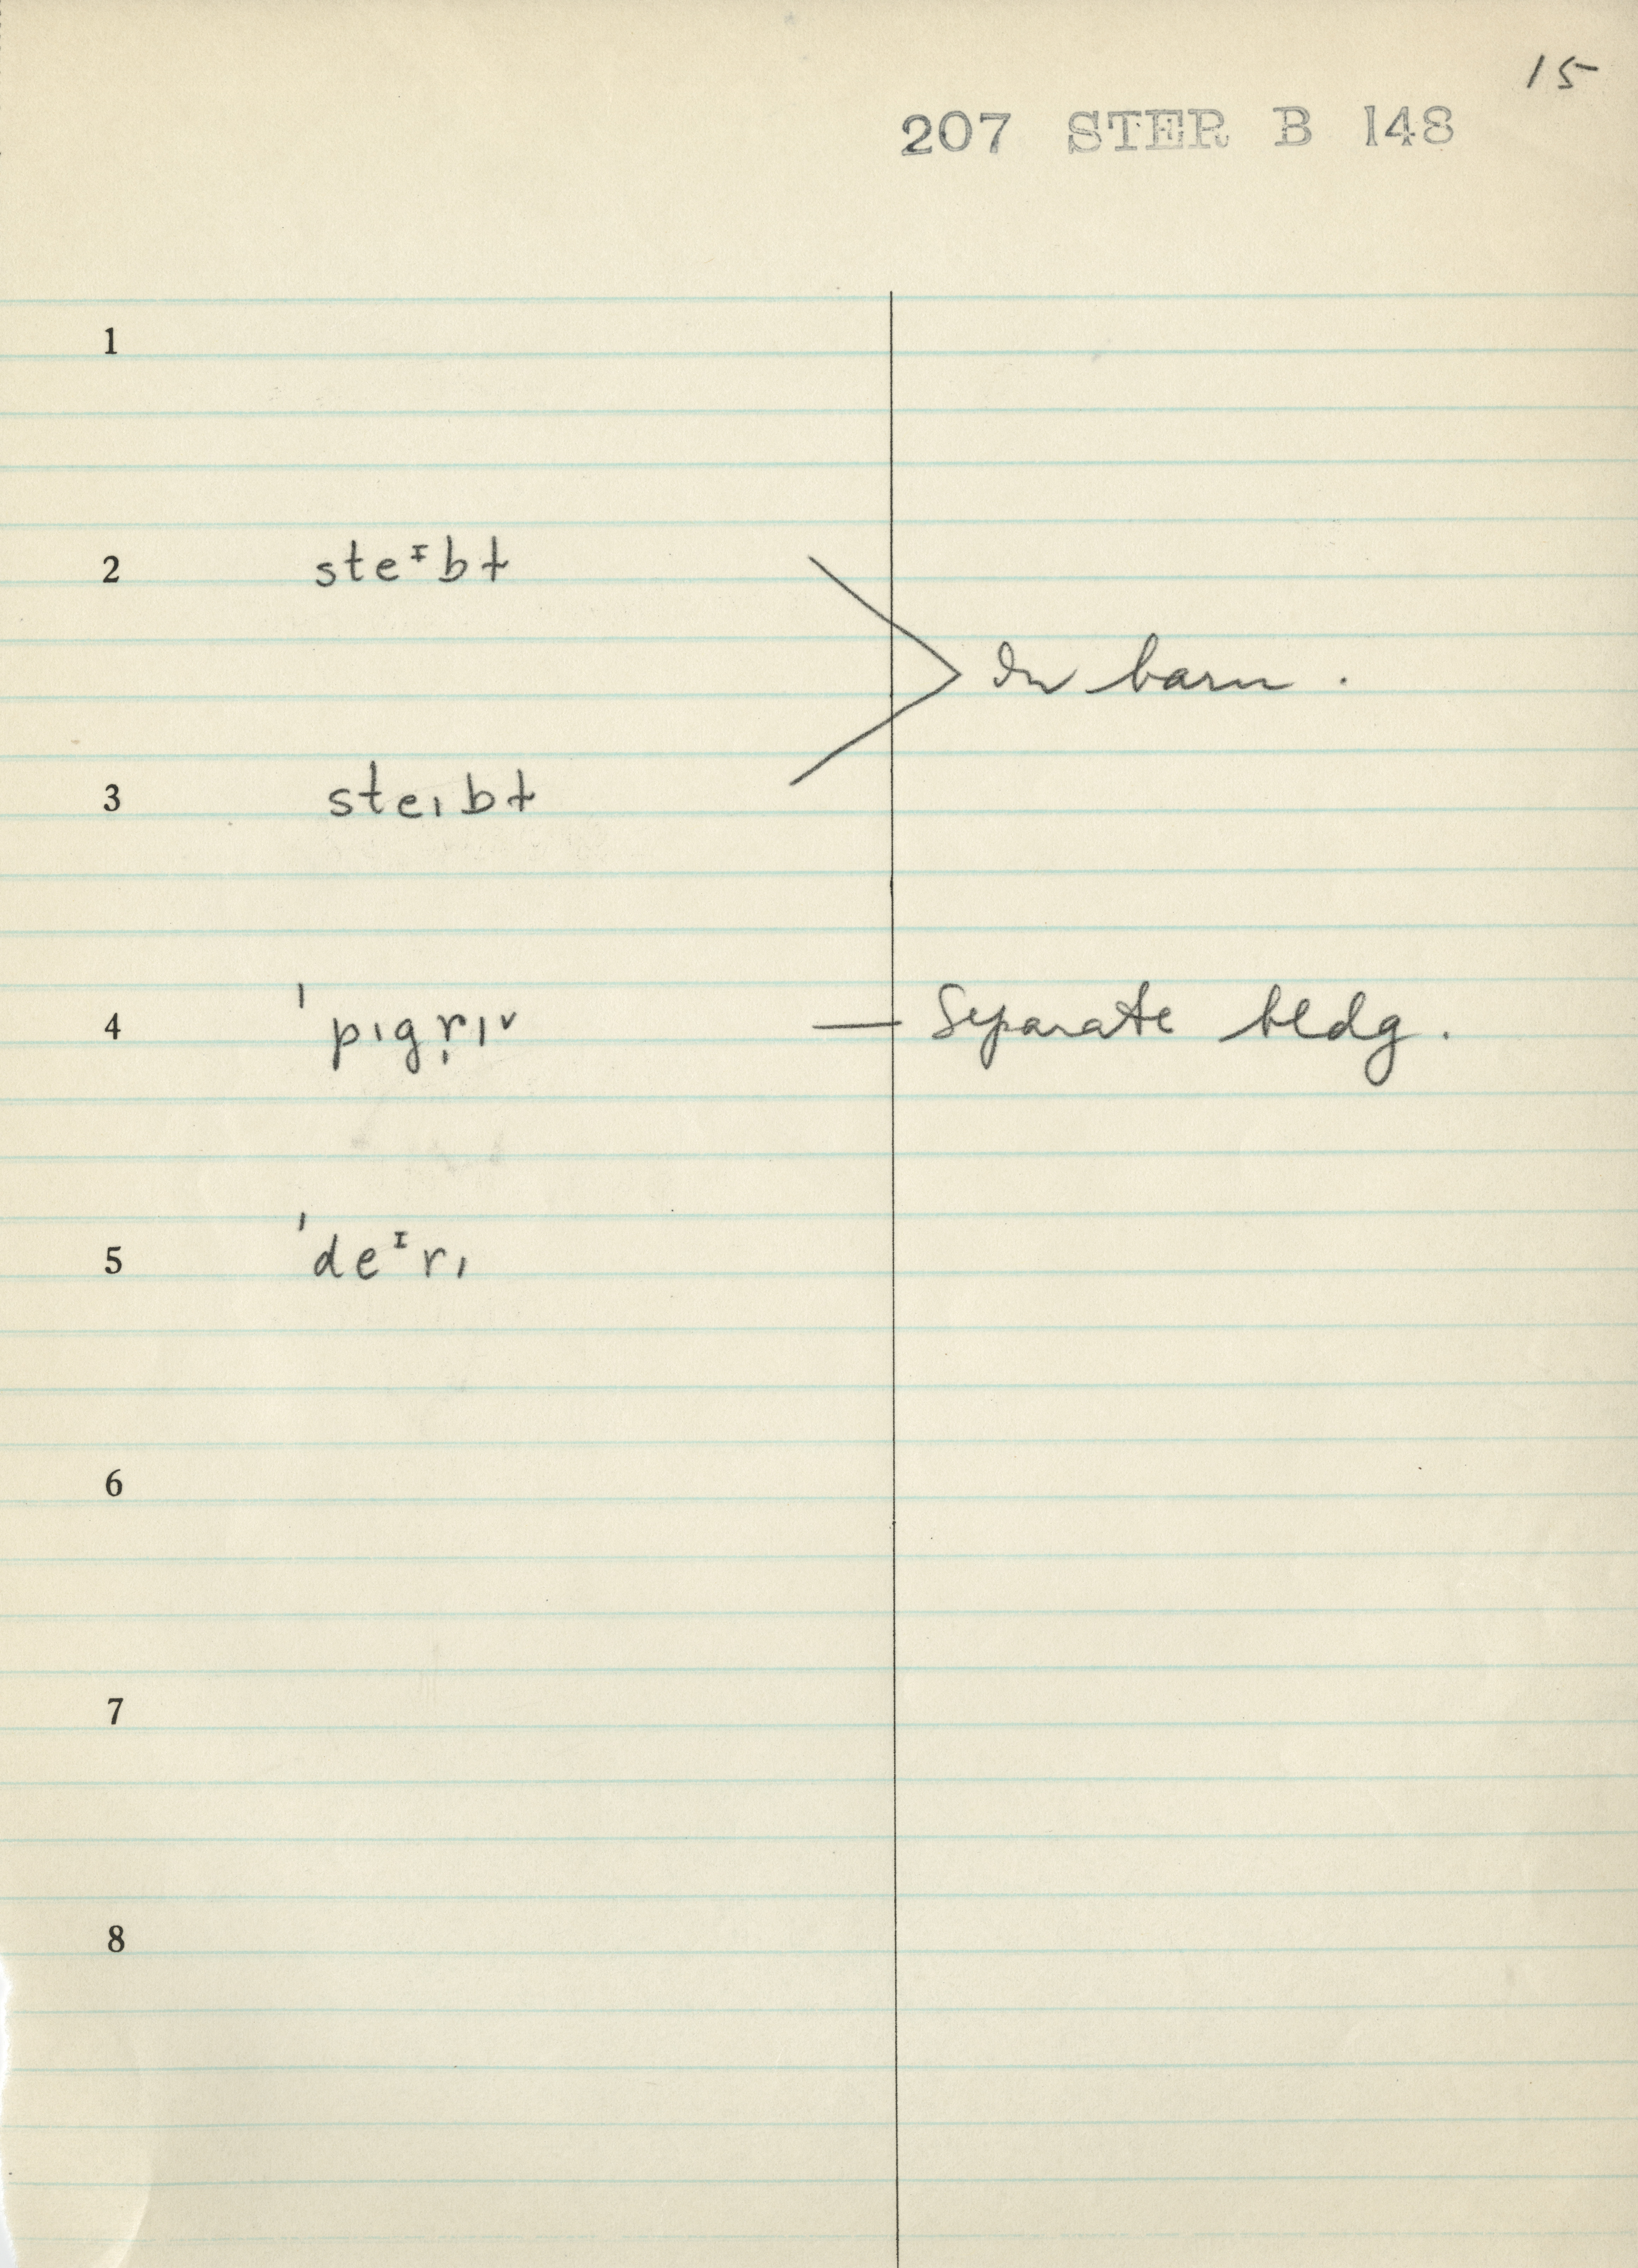 15
207 STER B 148
1
2 steᶦbɫ
In barn.
3 steɪbɫ
4 ˈpɪgr̩ɪ˅ — Separate bldg.
5 ˈdeᶦrɪ
6
7
8